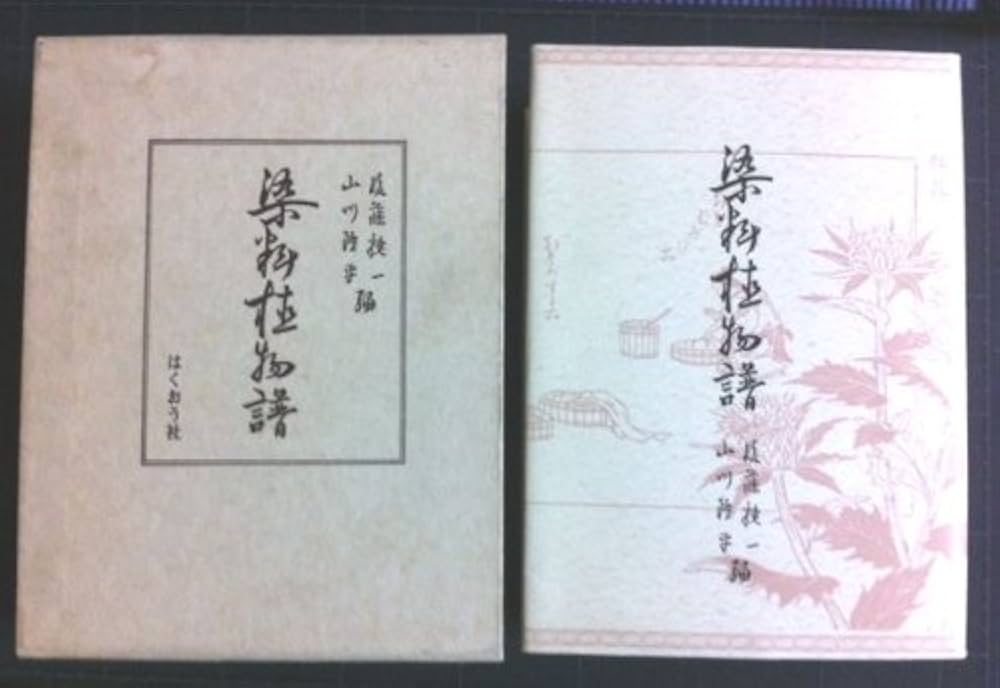 後藤捷一
山川隆平
編
染料植物譜
はくおう社
染料植物譜
後藤捷一
山川隆平
編